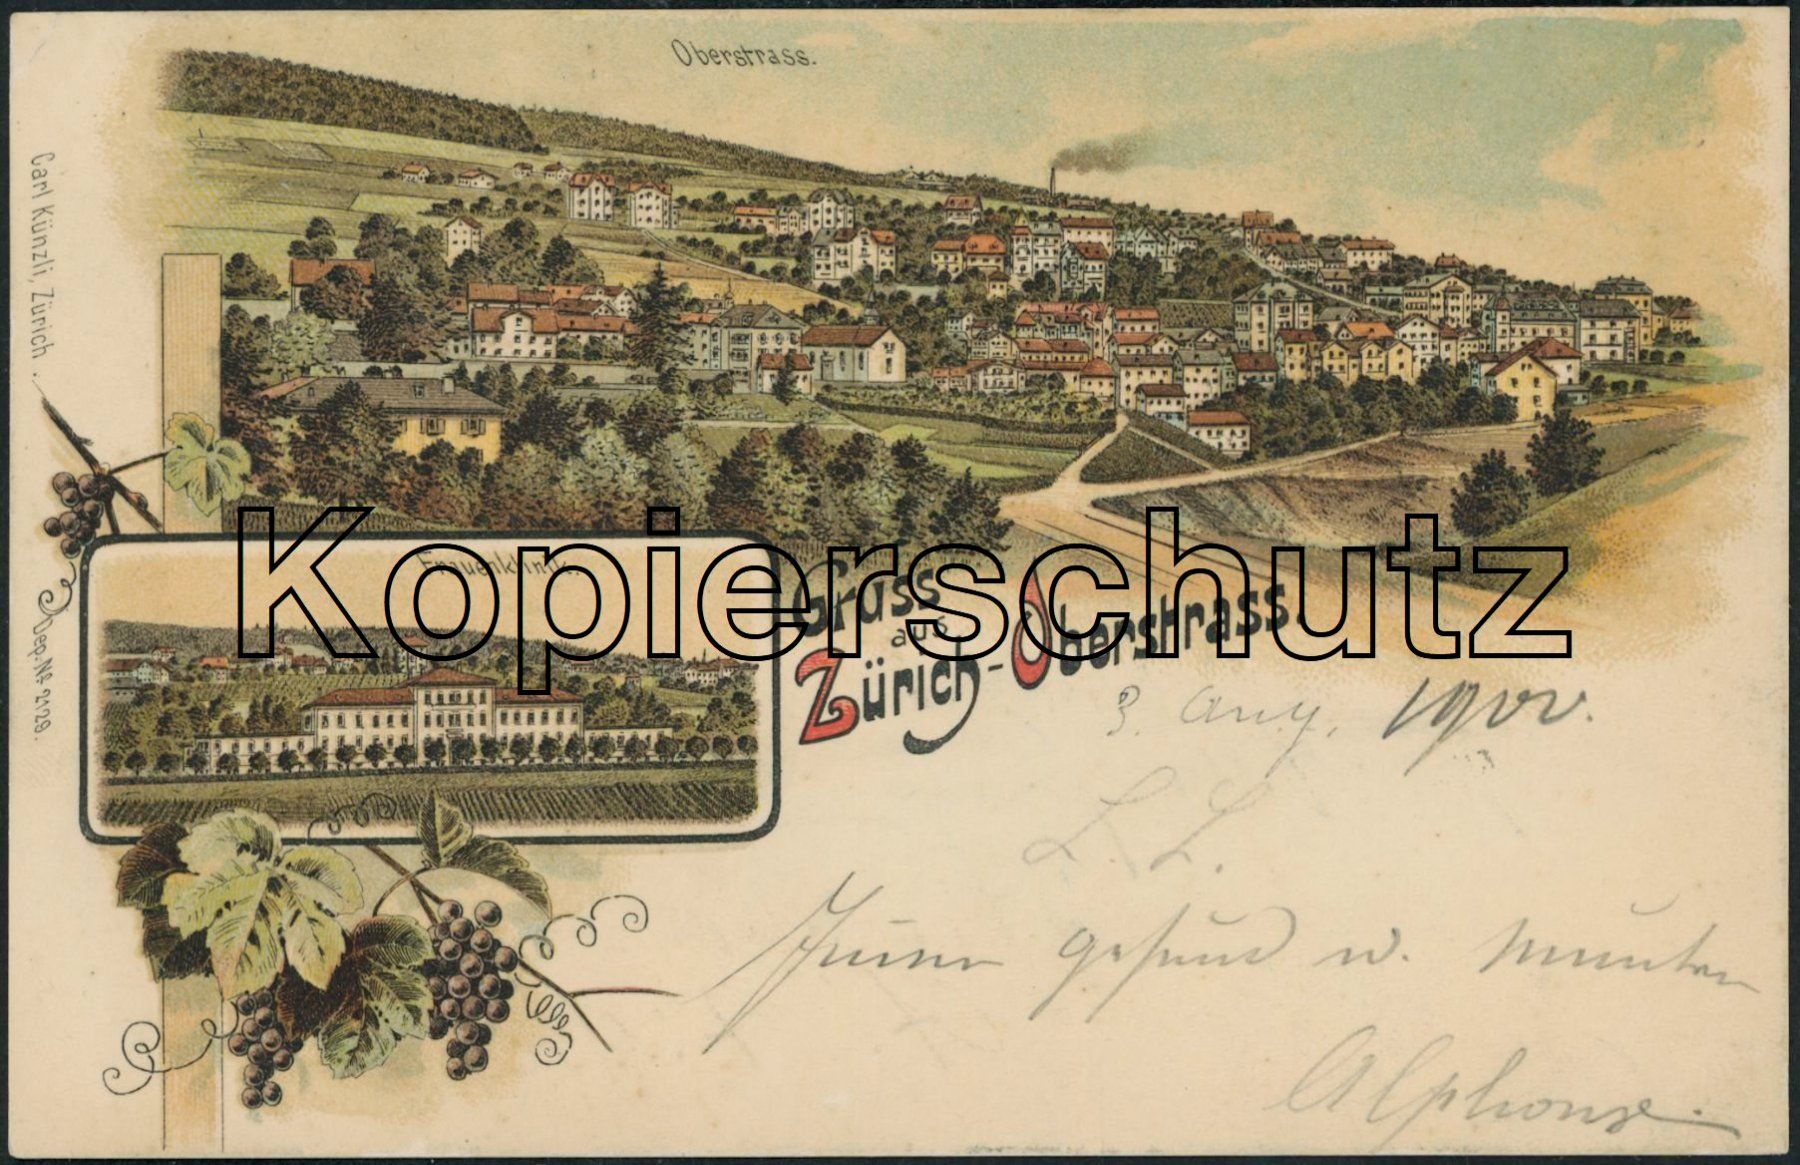 Oberstrass.
Carl Künzli, Zürich.
Dep. No. 2129.
Frauenklinik.
Kopierschutz
Gruss
aus
Zürich-Oberstrass.
3. Aug. 1900.
L. L.
Immer gesund u. munter
Alphonse.